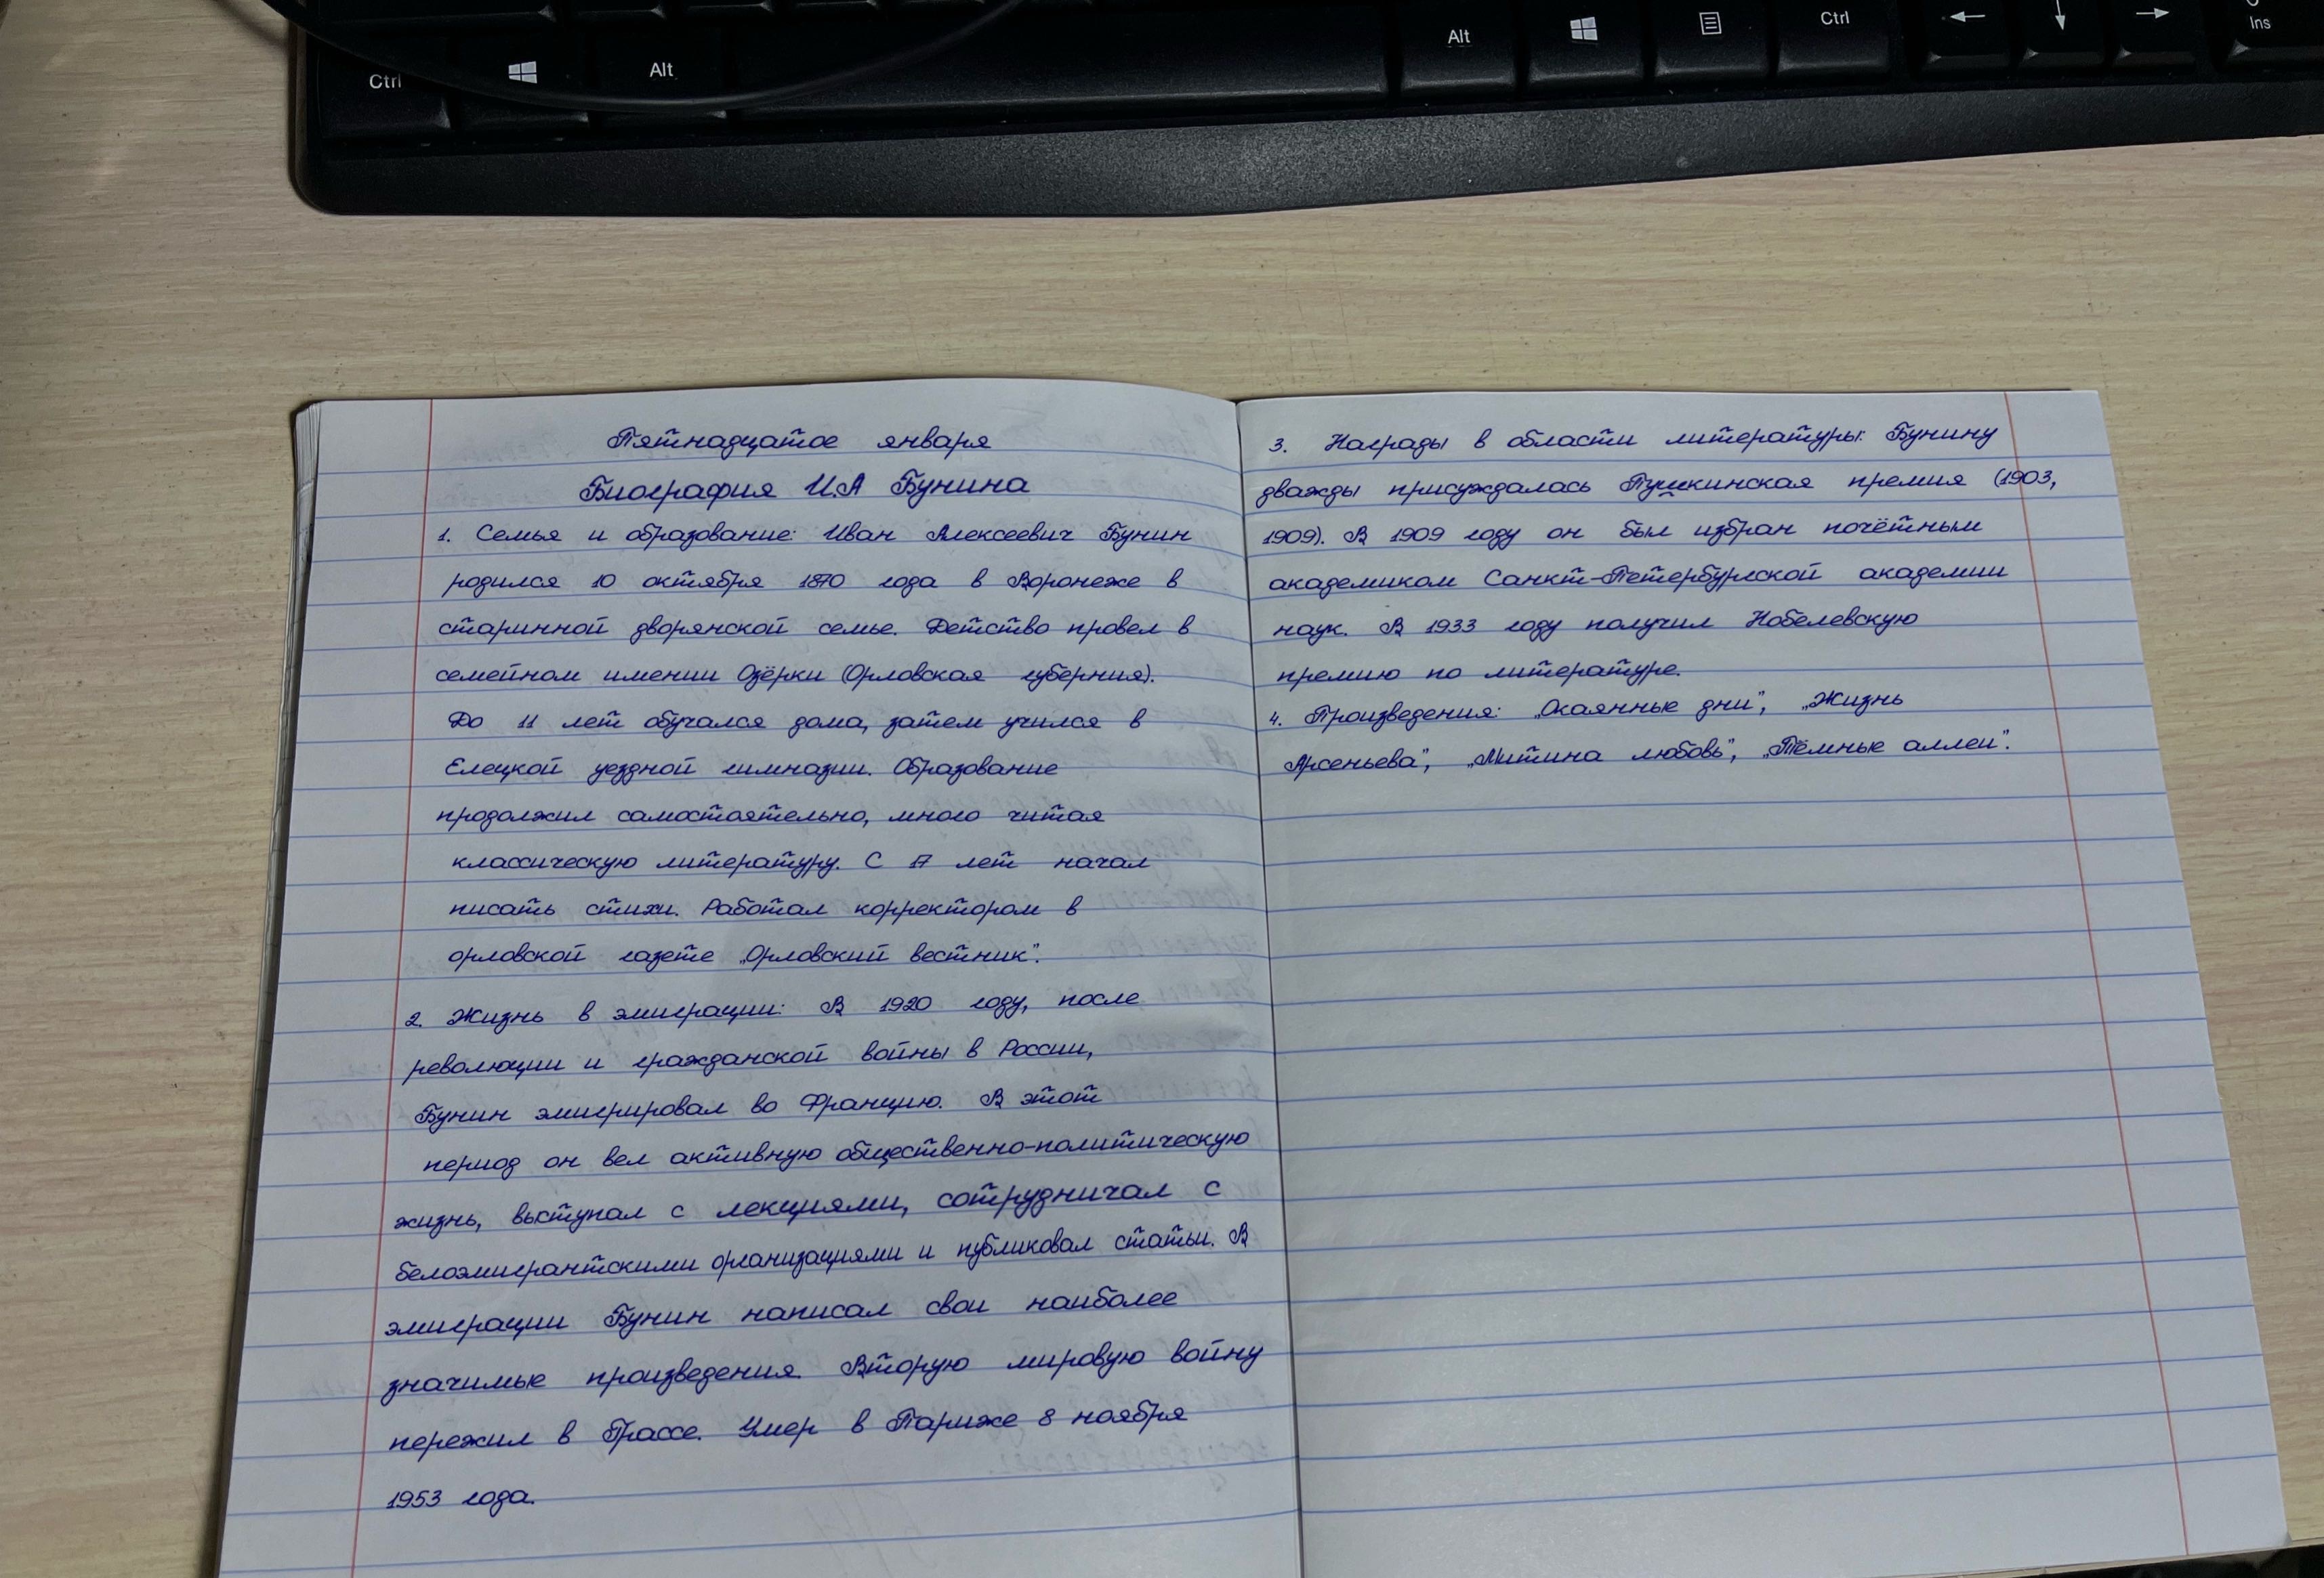 Ctrl
Alt
Alt
Ctrl
Ins
Пятнадцатое января
Биография И.А Бунина
1. Семья и образование: Иван Алексеевич Бунин
родился 10 октября 1870 года в Воронеже в
старинной дворянской семье. Детство провел в
семейном имении Озёрки (Орловская губерния).
До 11 лет обучался дома, затем учился в
Елецкой уездной гимназии. Образование
продолжил самостоятельно, много читая
классическую литературу. С 17 лет начал
писать стихи. Работал корректором в
орловской газете „Орловский вестник".
2. Жизнь в эмиграции: В 1920 году, после
революции и гражданской войны в России,
Бунин эмигрировал во Францию. В этот
период он вел активную общественно-политическую
жизнь, выступал с лекциями, сотрудничал с
белоэмигрантскими организациями и публиковал статьи. В
эмиграции Бунин написал свои наиболее
значимые произведения. Вторую мировую войну
пережил в Грассе. Умер в Париже 8 ноября
1953 года.
3. Награды в области литературы: Бунину
дважды присуждалась Пушкинская премия (1903,
1909). В 1909 году он был избран почётным
академиком Санкт-Петербургской академии
наук. В 1933 году получил Нобелевскую
премию по литературе.
4. Произведения: „Окаянные дни", „Жизнь
Арсеньева", „Митина любовь", „Тёмные аллеи".